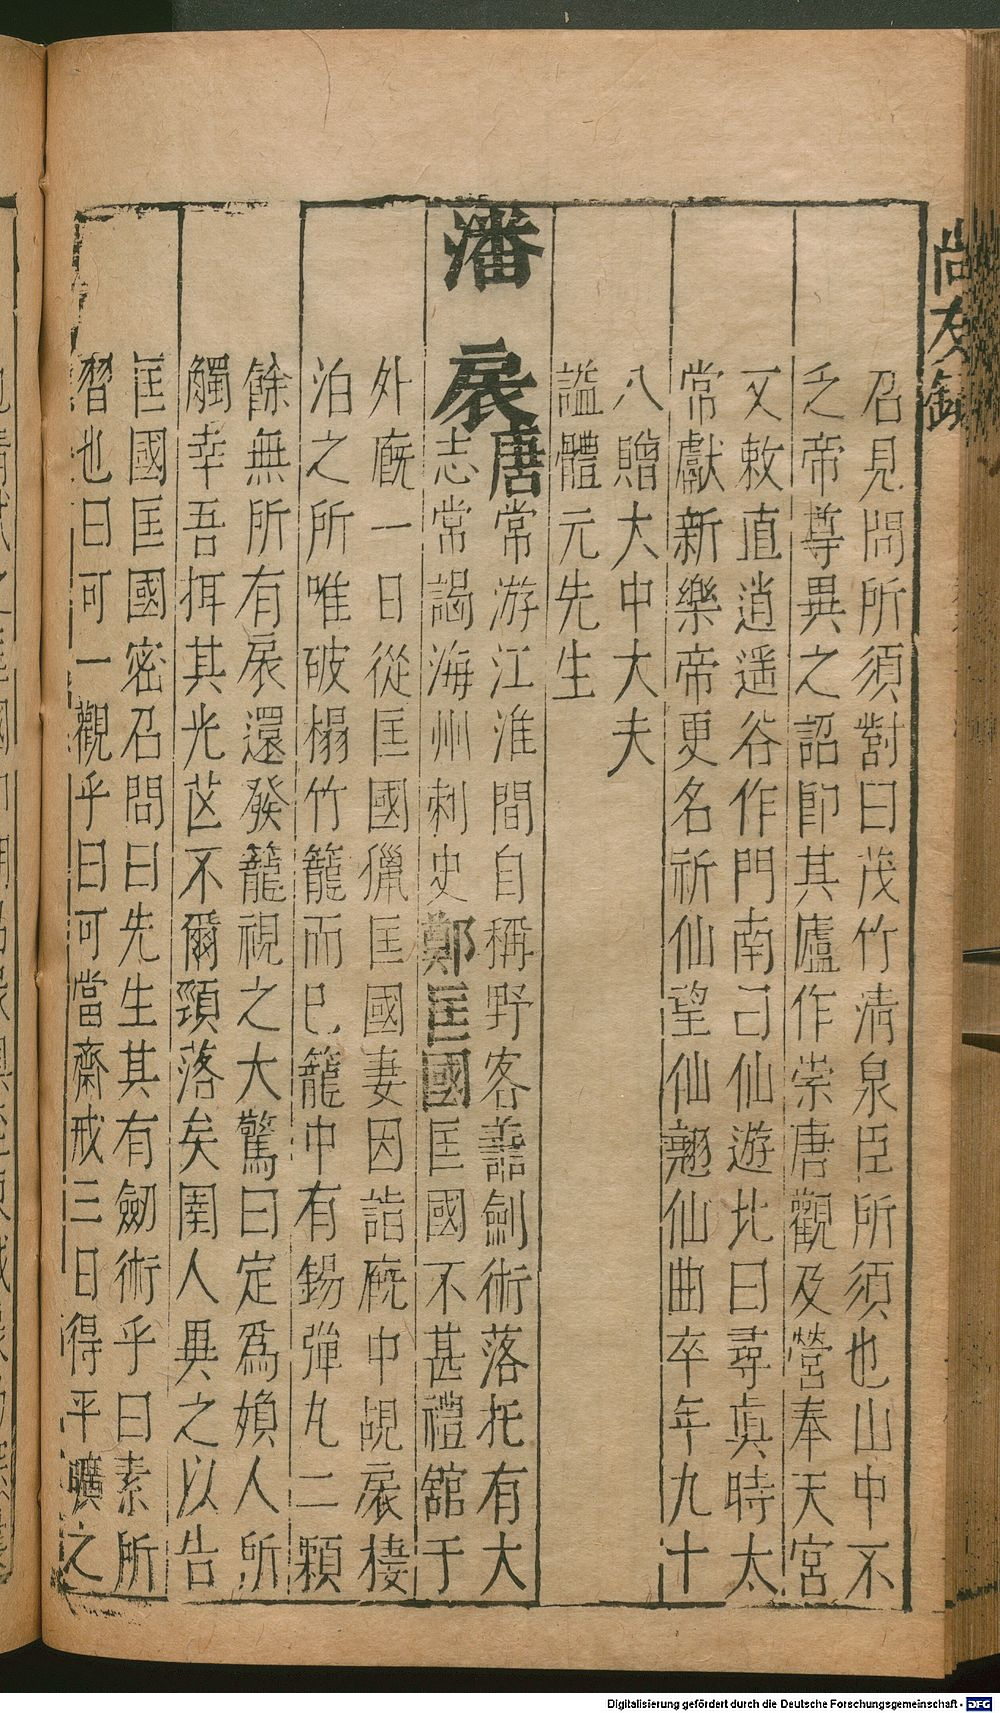 尚友錄
召見問所須對曰茂竹清泉臣所須也山中不
乏帝尊異之詔卽其廬作崇唐觀及營奉天宮
又敕直逍遥谷作門南曰仙遊北曰尋眞時太
常獻新樂帝更名祈仙望仙翹仙曲卒年九十
八贈大中大夫
謚體元先生
潘扆
唐常游江淮間自稱野客善劍術落托有大
志常謁海州刺史鄭匡國匡國不甚禮舘于
外廐一日從匡國獵匡國妻因詣廐中覘扆棲
泊之所唯破榻竹籠而已籠中有錫彈丸二顆
餘無所有扆還發籠視之大驚曰定爲婦人所
觸幸吾弭其光芒不爾頸落矣圉人異之以告
匡國匡國密召問曰先生其有劒術乎曰素所
習也曰可一觀乎曰可當齋戒三日得平曠之
Digitalisierung gefördert durch die Deutsche Forschungsgemeinschaft - DFG